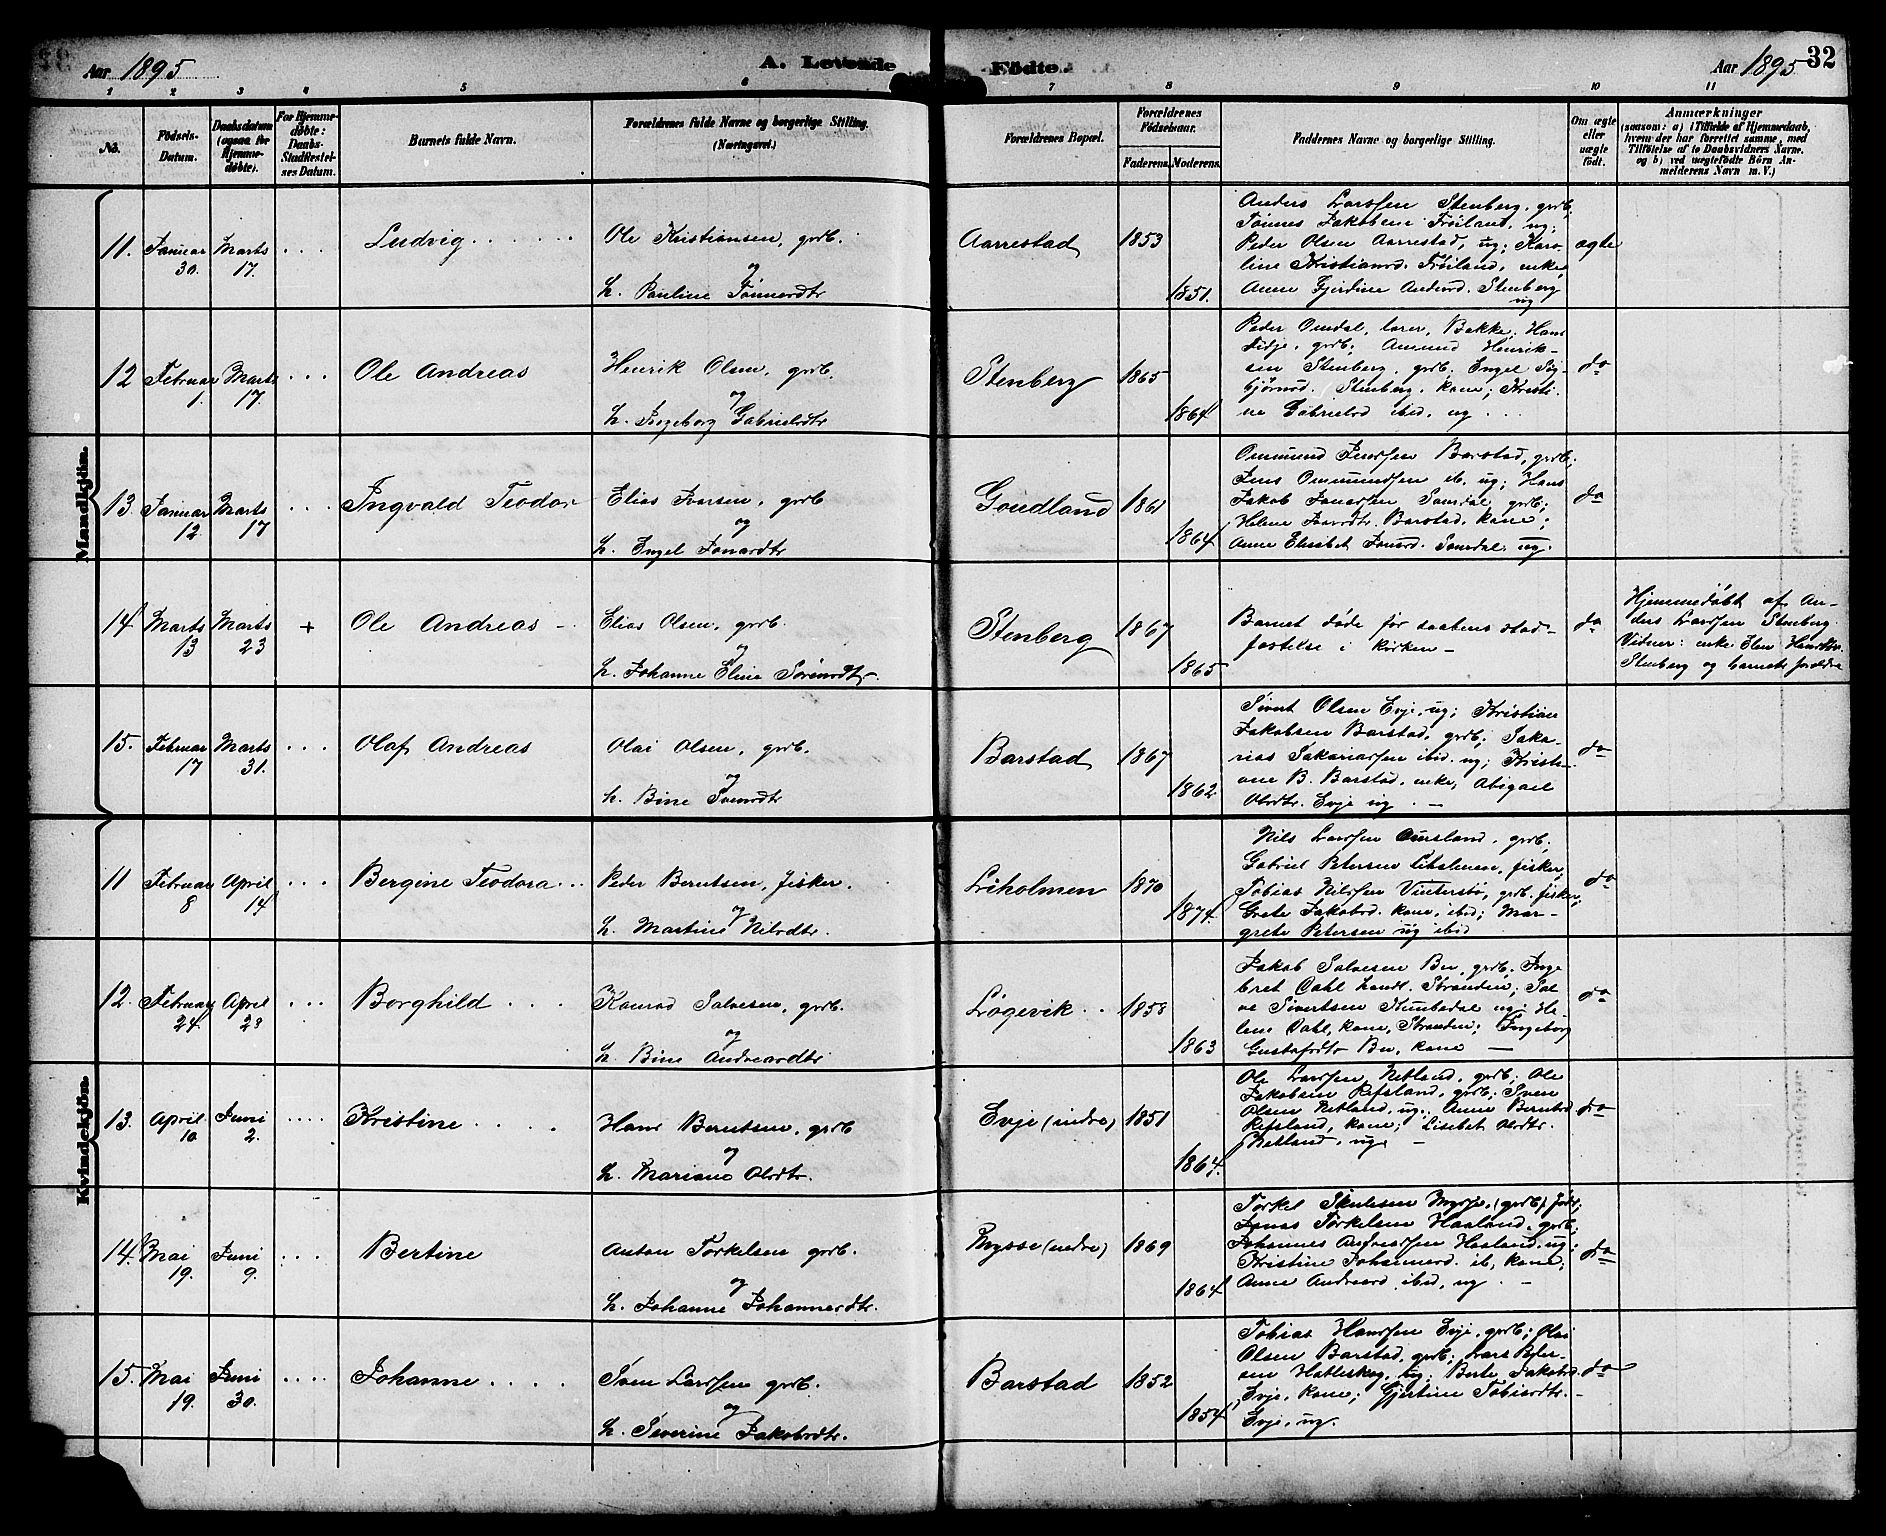 Aar 1895 A. Levende Födte. Aar 1895 32
1 2 3 4 5 6 7 8 9 10 11
No. Födsels-Datum. Daabsdatum (ogsaa for Hjemmedøbte). For Hjemmedøbte: Daabs-Stadfestelses Datum. Barnets fulde Navn. Forældrenes fulde Navne og borgerlige Stilling. (Næringsvei.) Forældrenes Bopæl. Forældrenes Födselsaar. Faderens. Moderens. Faddernes Navne og borgerlige Stilling. Om ægte eller uægte födt. Anmærkninger (saasom: a) i Tilfælde af Hjemmedaab, hvem der har forrettet samme, med Tilföielse af to Daabsvidners Navne, og b) ved uægtefödte Börn Anmelderens Navn m. V.)
Mandkjön.
11. Januar 30. Marts 17. Ludvig Ole Kristiansen, grdb. og h. Pauline Tönnesdtr Aarrestad 1853 1851.
Anders Larssen Stenberg, grdb,
Tönnes Jakobsen Fröiland, ug;
Peder Olsen Aarrestad, ug; Karo-
line Kristiansd. Fröiland, enke,
Anne Gjerdine Andersd. Stenberg
ug
ægte
12 Februar 1. Marts 17. Ole Andreas Henrik Olsen, grdb. og h. Ingeborg Gabrielsdtr Stenberg 1865 1864
Peder Omdal, lærer, Bakke; Hans
Fidje, grdb; Amund Henrik-
sen Stenberg, grdb. Engel
Stenberg, kone; Kristi-
ne Gabrielsd ibid, ug
do
13. Januar 12. Marts 17 Ingvald Teodor Elias Ivarsen, grdb og h. Engel Jonasdtr Goudland 1861 1864
Ommund Jenssen Barstad, grdb;
Jens Ommundsen ib. ug; Hans
Jakob Jonassen, grdb;
Helene Barstad, kone;
Anne Elisabet Jonasd. ug.
do
14 Marts 13 Marts 23 + Ole Andreas Elias Olsen, grdb. og h. Johanne Eline Sörensdtr. Stenberg 1867 1865
Barnet döde før daabens stad-
fæstelse i kirken
do
Hjemmedøbt af An-
ders Larssen Stenberg.
Vidner: enke Elen
Stenberg og barnets forældre
15. Februar 17 Marts 31. Olaf Andreas Olai Olsen, grdb. og h. Bine Barstad 1867 1862
Sivert Olsen Evje, ug; Kristian
Jakobsen Barstad, grdb; Saka-
rias Sakariassen ibid. ug; Kristi-
ane B. Barstad, enke, Abigael
Olsdtr. Evje ug
do
Kvindekjön.
11 Februar 8 April 14 Bergine Teodora Peder Berntsen, fisker. og h. Martine Nilsdtr. Löiholmen 1870 1874.
Nils Larssen, grdb,
Gabriel Petersen, fisker,
Tobias Nilssen Vinterstö, grdb. fisker,
Grete Jakobsd. kone, ibid; Mar-
grete Petersen ug ibid
do
12. Februar 24. April 28 Borghild Konrad Salvesen, grdb. og h. Bine Andreasdtr Løgevik 1858 1863
Jakob Salvesen Bu, grdb; Inge-
bret Dahl, handl. Stranden; Sal-
ve Sivertsen ug; He-
lene Dahl, kone, Stranden; Ingeborg
Gustafsdtr Bu, kone
do
13. April 10 Juni 2. Kristine Hans Berntsen, grdb og h. Mariane Olsdtr. Evje (indre) 1851 1864.
Ole Larssen Netland, grdb; Ole
Jakobsen Refsland, grdb; Sven
Olsen Netland, ug; Anne Berntsd
Refsland, kone; Lisebet Olsdtr.
Netland, ug
do
14. Mai 19. Juni 9. Bertine Anton Torkelsen grdb. og h. Johanne Johannesdtr. Mysse (nedre) 1869 1864
Torkel, (grdb),
Jonas Torkelsen Haaland, grdb,
Johannes Andreassen Haaland, ug;
Kristine Johannesd. ib, kone;
Anne Andreasd ibid, ug
do
15. Mai 19. Juni 30. Johanne Sven Larssen grdb. og h. Severine Jakobsdtr. Barstad 1852 1854
Tobias Hanssen Evje, grdb; Olai
Olsen Barstad, grdb; Lars Peter-
sen Hatleskog, ug; Berte Jakobsd
Evje, kone; Gjertine Tobiasdtr.
Evje, ug.
do